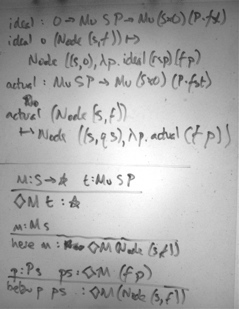 ideal : O → Mu S P → Mu (S×O) (P·fst)
ideal o (Node (s,f)) ↦
Node ((s,o), λp. ideal (r p) (f p)
actual : Mu S P → Mu (S×O) (P·fst)
actual (Node (s,f))
↦ Node ((s, q s), λp. actual (f p))
M:S→☆ t:Mu S P
◇M t : ☆
m:Ms
here m : ◇M (Node (s,f))
p:Ps ps:◇M (f p)
below p ps : ◇M (Node (s,f))